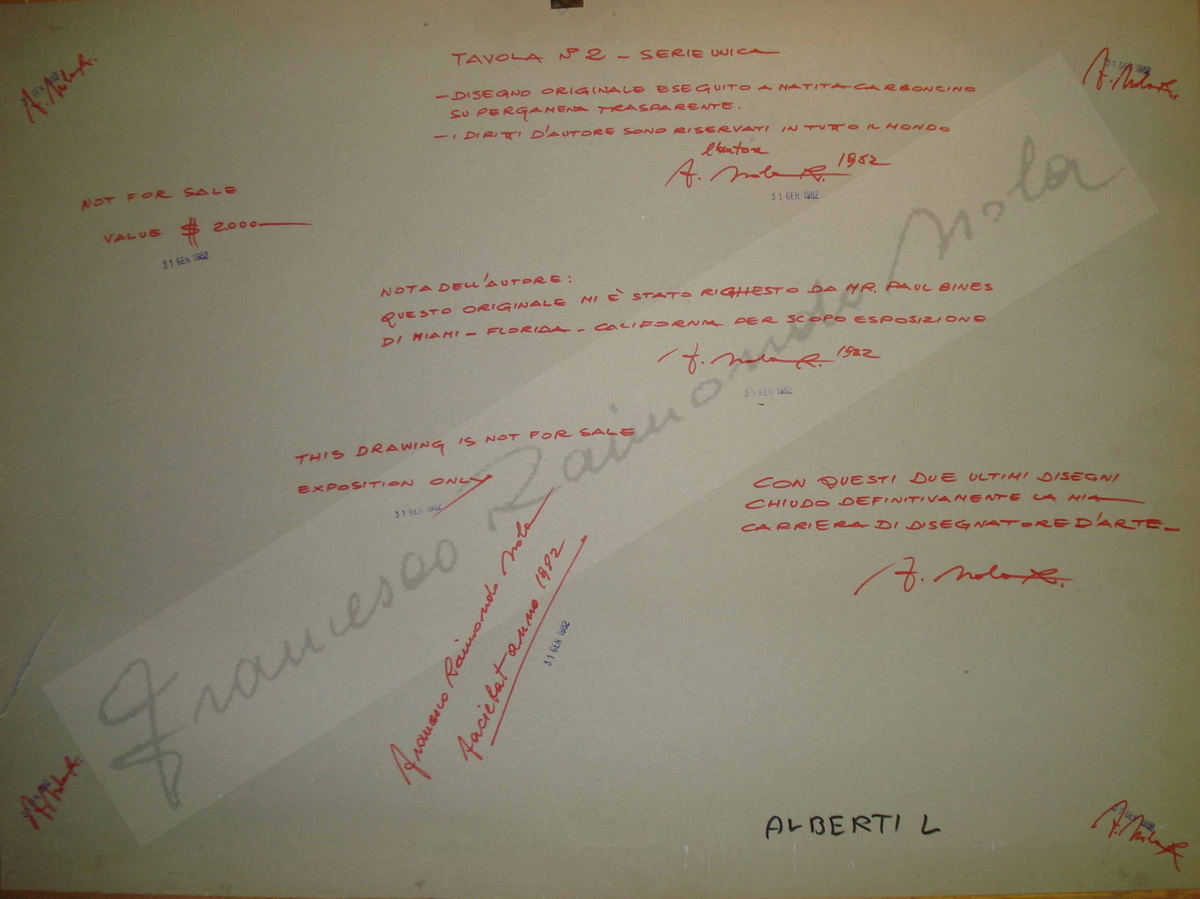 TAVOLA N° 2 - SERIE UNICA
- DISEGNO ORIGINALE ESEGUITO A MATITA-CARBONCINO
SU PERGAMENA TRASPARENTE.
- I DIRITTI D'AUTORE SONO RISERVATI IN TUTTO IL MONDO
l'autore
F. Nola R. 1982
31 GEN 1982
NOT FOR SALE
VALUE $ 2000
31 GEN 1982
NOTA DELL'AUTORE:
QUESTO ORIGINALE MI È STATO RIGHESTO DA MR. PAUL BINES
DI MIAMI - FLORIDA - CALIFORNIA PER SCOPO ESPOSIZIONE
F. Nola R. 1982
31 GEN 1982
THIS DRAWING IS NOT FOR SALE
EXPOSITION ONLY
31 GEN. 1982
CON QUESTI DUE ULTIMI DISEGNI
CHIUDO DEFINITIVAMENTE LA MIA
CARRIERA DI DISEGNATORE D'ARTE
F. Nola R.
Francesco Raimondo Nola
faciebat anno 1982
31 GEN 1982
Francesco Raimondo Nola
ALBERTI L
F. Nola R.
F. Nola R.
31 GEN 1982
F. Nola R.
F. Nola R.